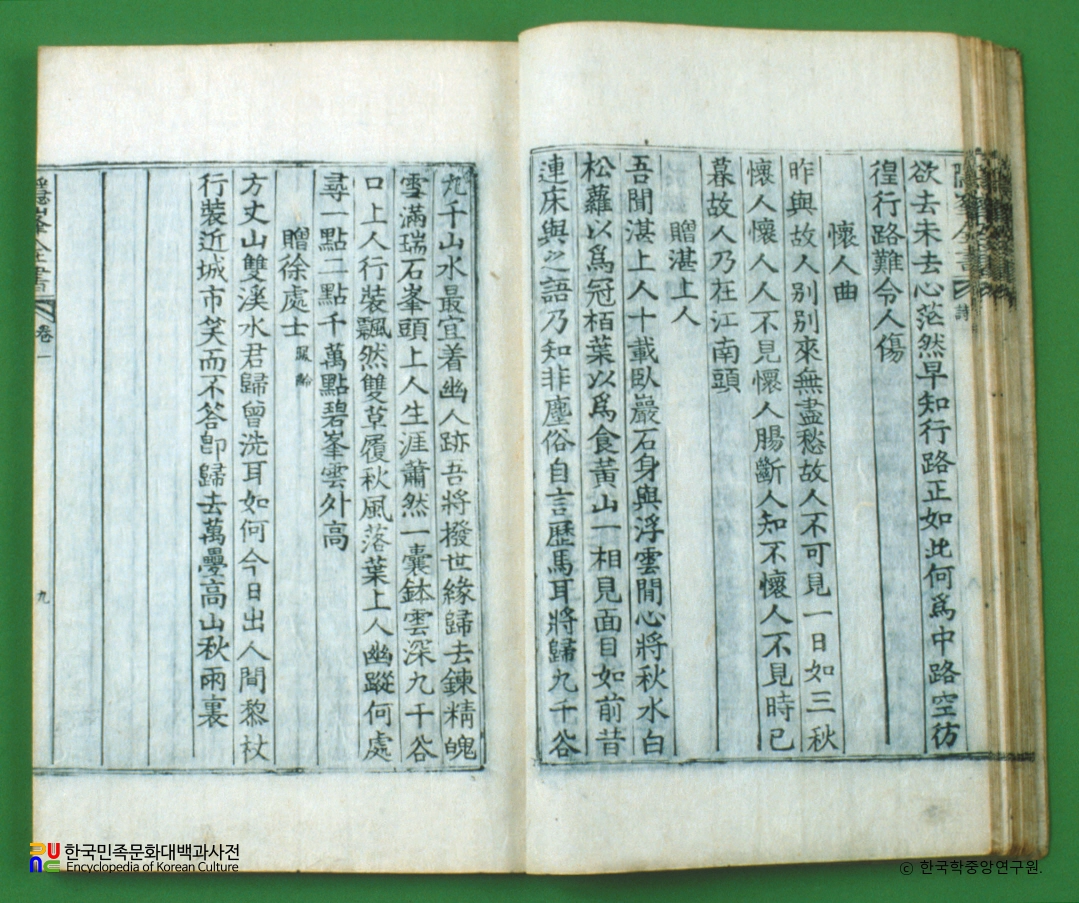 欲去未去心茫然早知行路正如此何爲中路空彷
徨行路難令人傷
懷人曲
昨與故人別別來無盡愁故人不可見一日如三秋
懷人懷人人不見懷人腸斷人知不懷人不見時已
暮故人乃在江南頭
贈湛上人
吾聞湛上人十載臥巖石身與浮雲閒心將秋水白
松蘿以爲冠栢葉以爲食黃山一相見面目如前昔
連床與之語乃知非塵俗自言歷馬耳將歸九千谷
九千山水最宜着幽人跡吾將撥世緣歸去鍊精魄
雪滿瑞石峯頭上人生涯蕭然一囊鉢雲深九千谷
口上人行裝飄然雙草履秋風落葉上人幽蹤何處
尋一點二點千萬點碧峯雲外高
贈徐處士 鳳齡
方丈山雙溪水君歸曾洗耳如何今日出人間黎杖
行裝近城市笑而不答卽歸去萬疊高山秋雨裏
隱峯全書 卷一 九
한국민족문화대백과사전
Encyclopedia of Korean Culture
© 한국학중앙연구원.